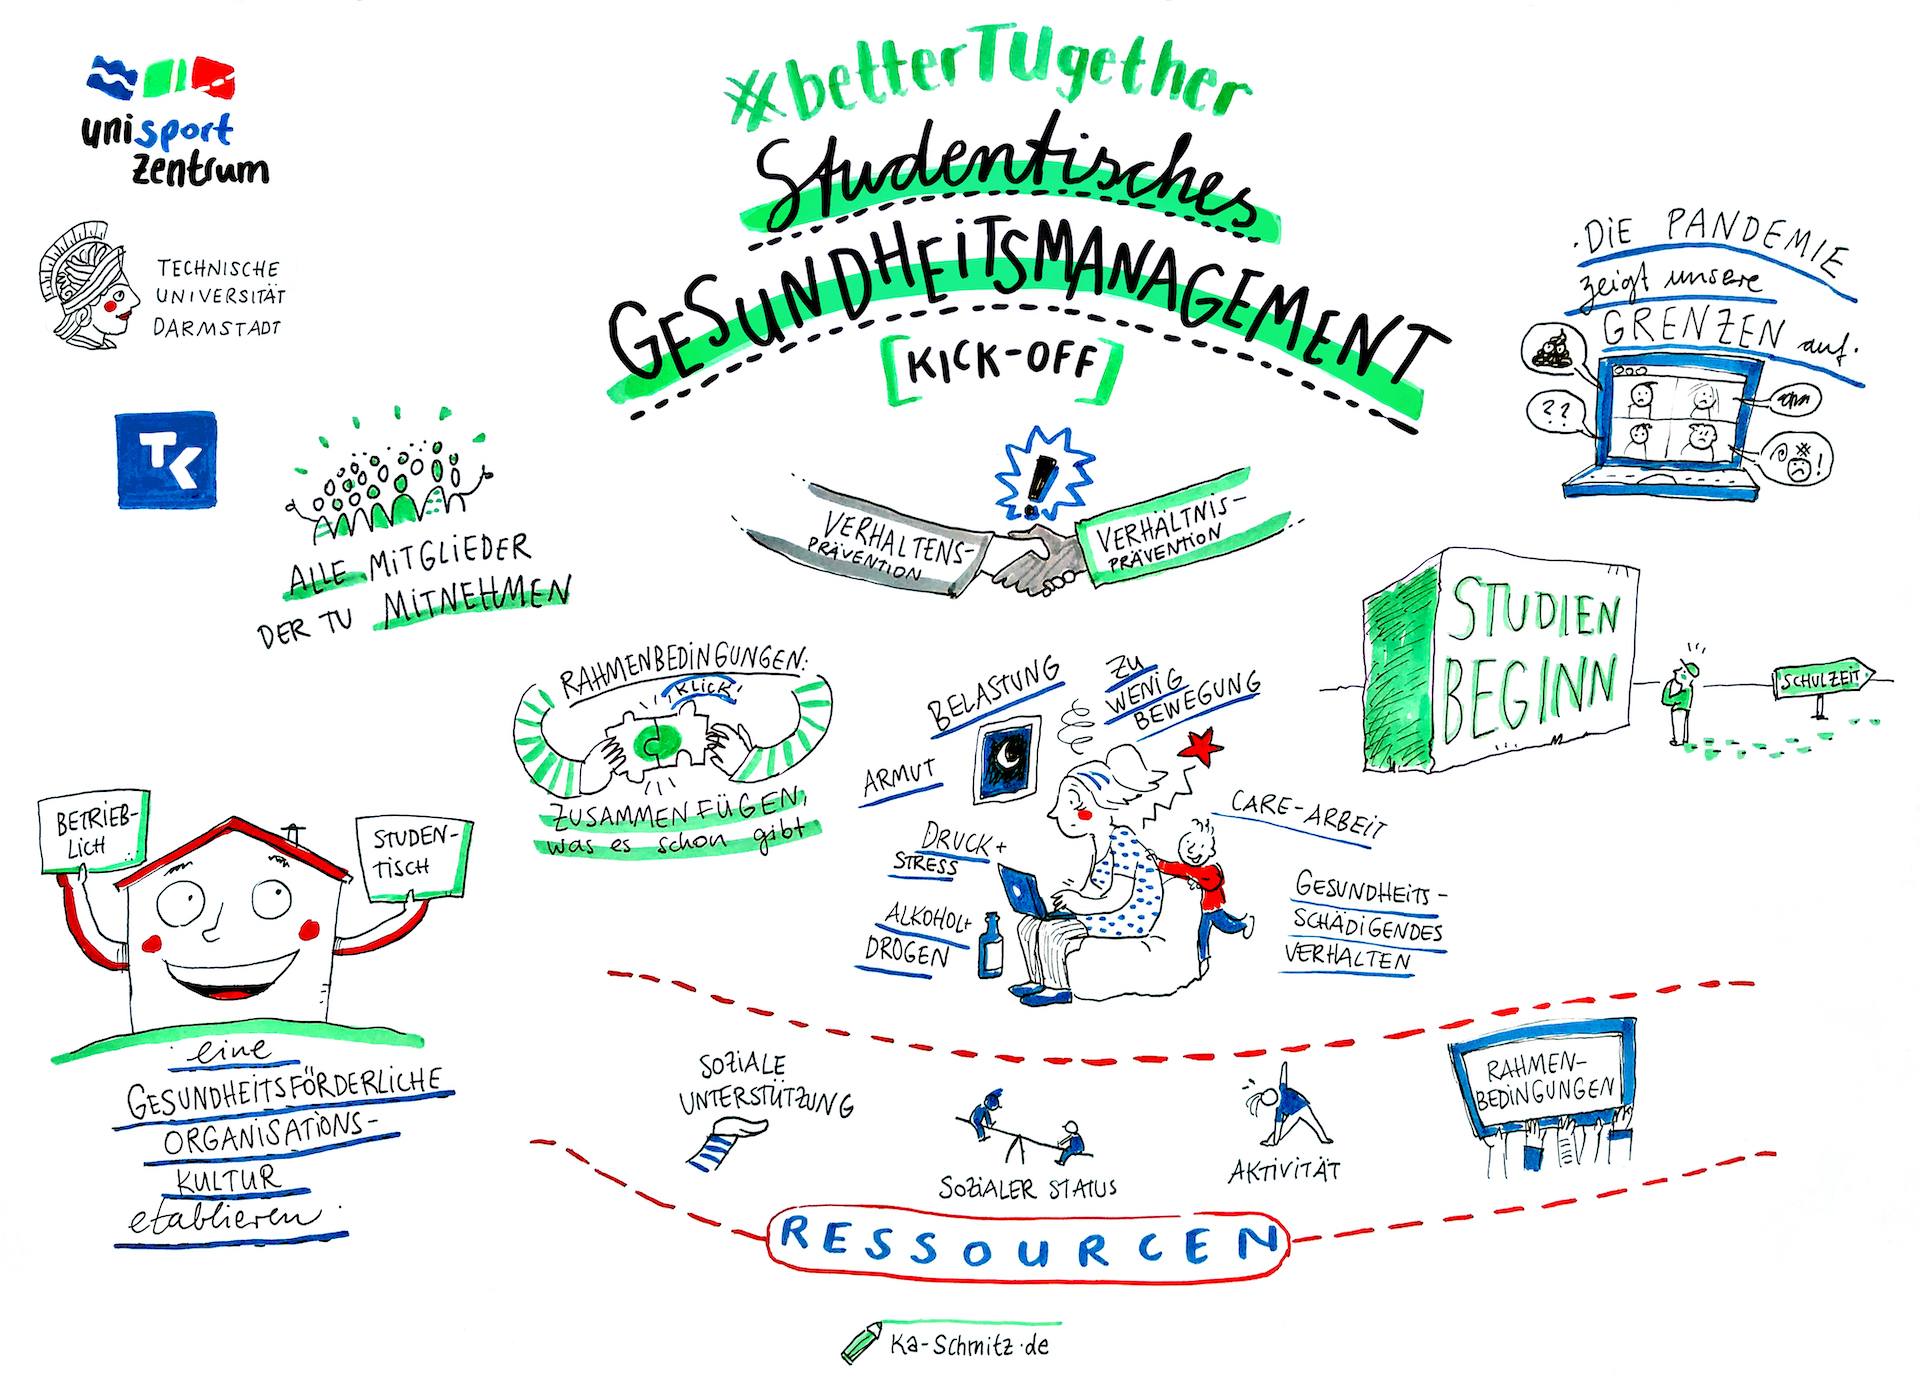 #betterTUgether
Studentisches
GESUNDHEITSMANAGEMENT
[KICK-OFF]
unisport
zentrum
TECHNISCHE
UNIVERSITÄT
DARMSTADT
TK
ALLE MITGLIEDER
DER TU MITNEHMEN
VERHALTENS-
PRÄVENTION
!
VERHÄLTNIS-
PRÄVENTION
·DIE PANDEMIE
zeigt unsere
GRENZEN auf.
??
!
STUDIEN
BEGINN
SCHULZEIT
RAHMENBEDINGUNGEN:
KLICK
ZUSAMMENFÜGEN,
was es schon gibt
BELASTUNG
ZU
WENIG
BEWEGUNG
ARMUT
DRUCK+
STRESS
ALKOHOL+
DROGEN
CARE-ARBEIT
GESUNDHEITS-
SCHÄDIGENDES
VERHALTEN
BETRIEB-
LICH
STUDEN-
TISCH
eine
GESUNDHEITSFÖRDERLICHE
ORGANISATIONS-
KULTUR
etablieren.
SOZIALE
UNTERSTÜTZUNG
SOZIALER STATUS
AKTIVITÄT
RAHMEN-
BEDINGUNGEN
RESSOURCEN
Ka-Schmitz.de